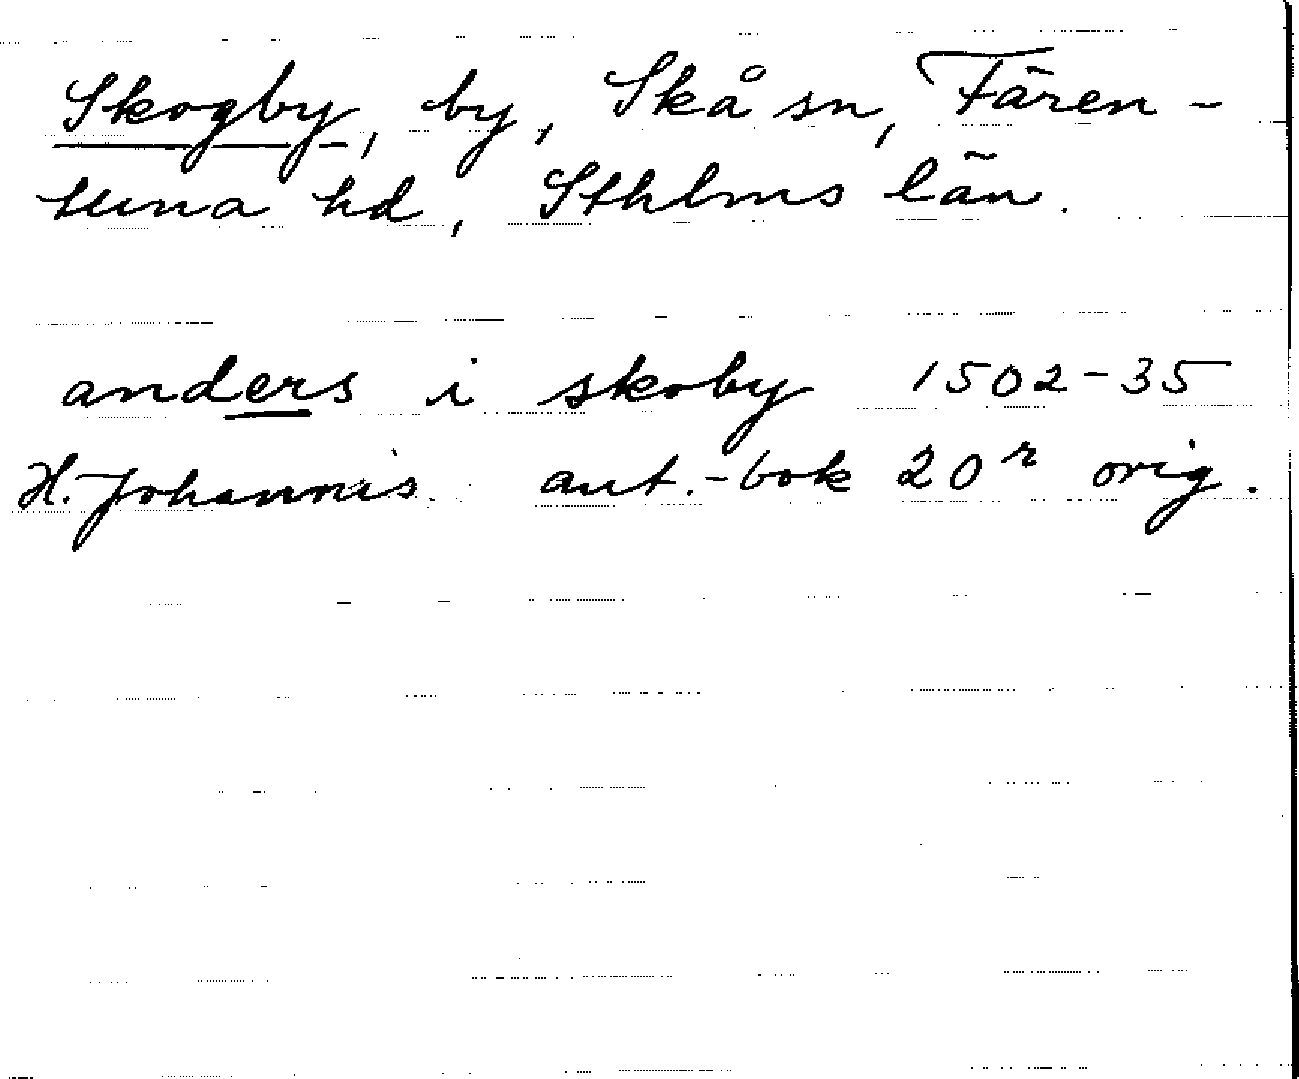 Skogby, by, Skå sn, Fären-
tuna hd, Sthlms län.
anders i skoby 1502-35
H. Johannis ant.-bok 20r orig.